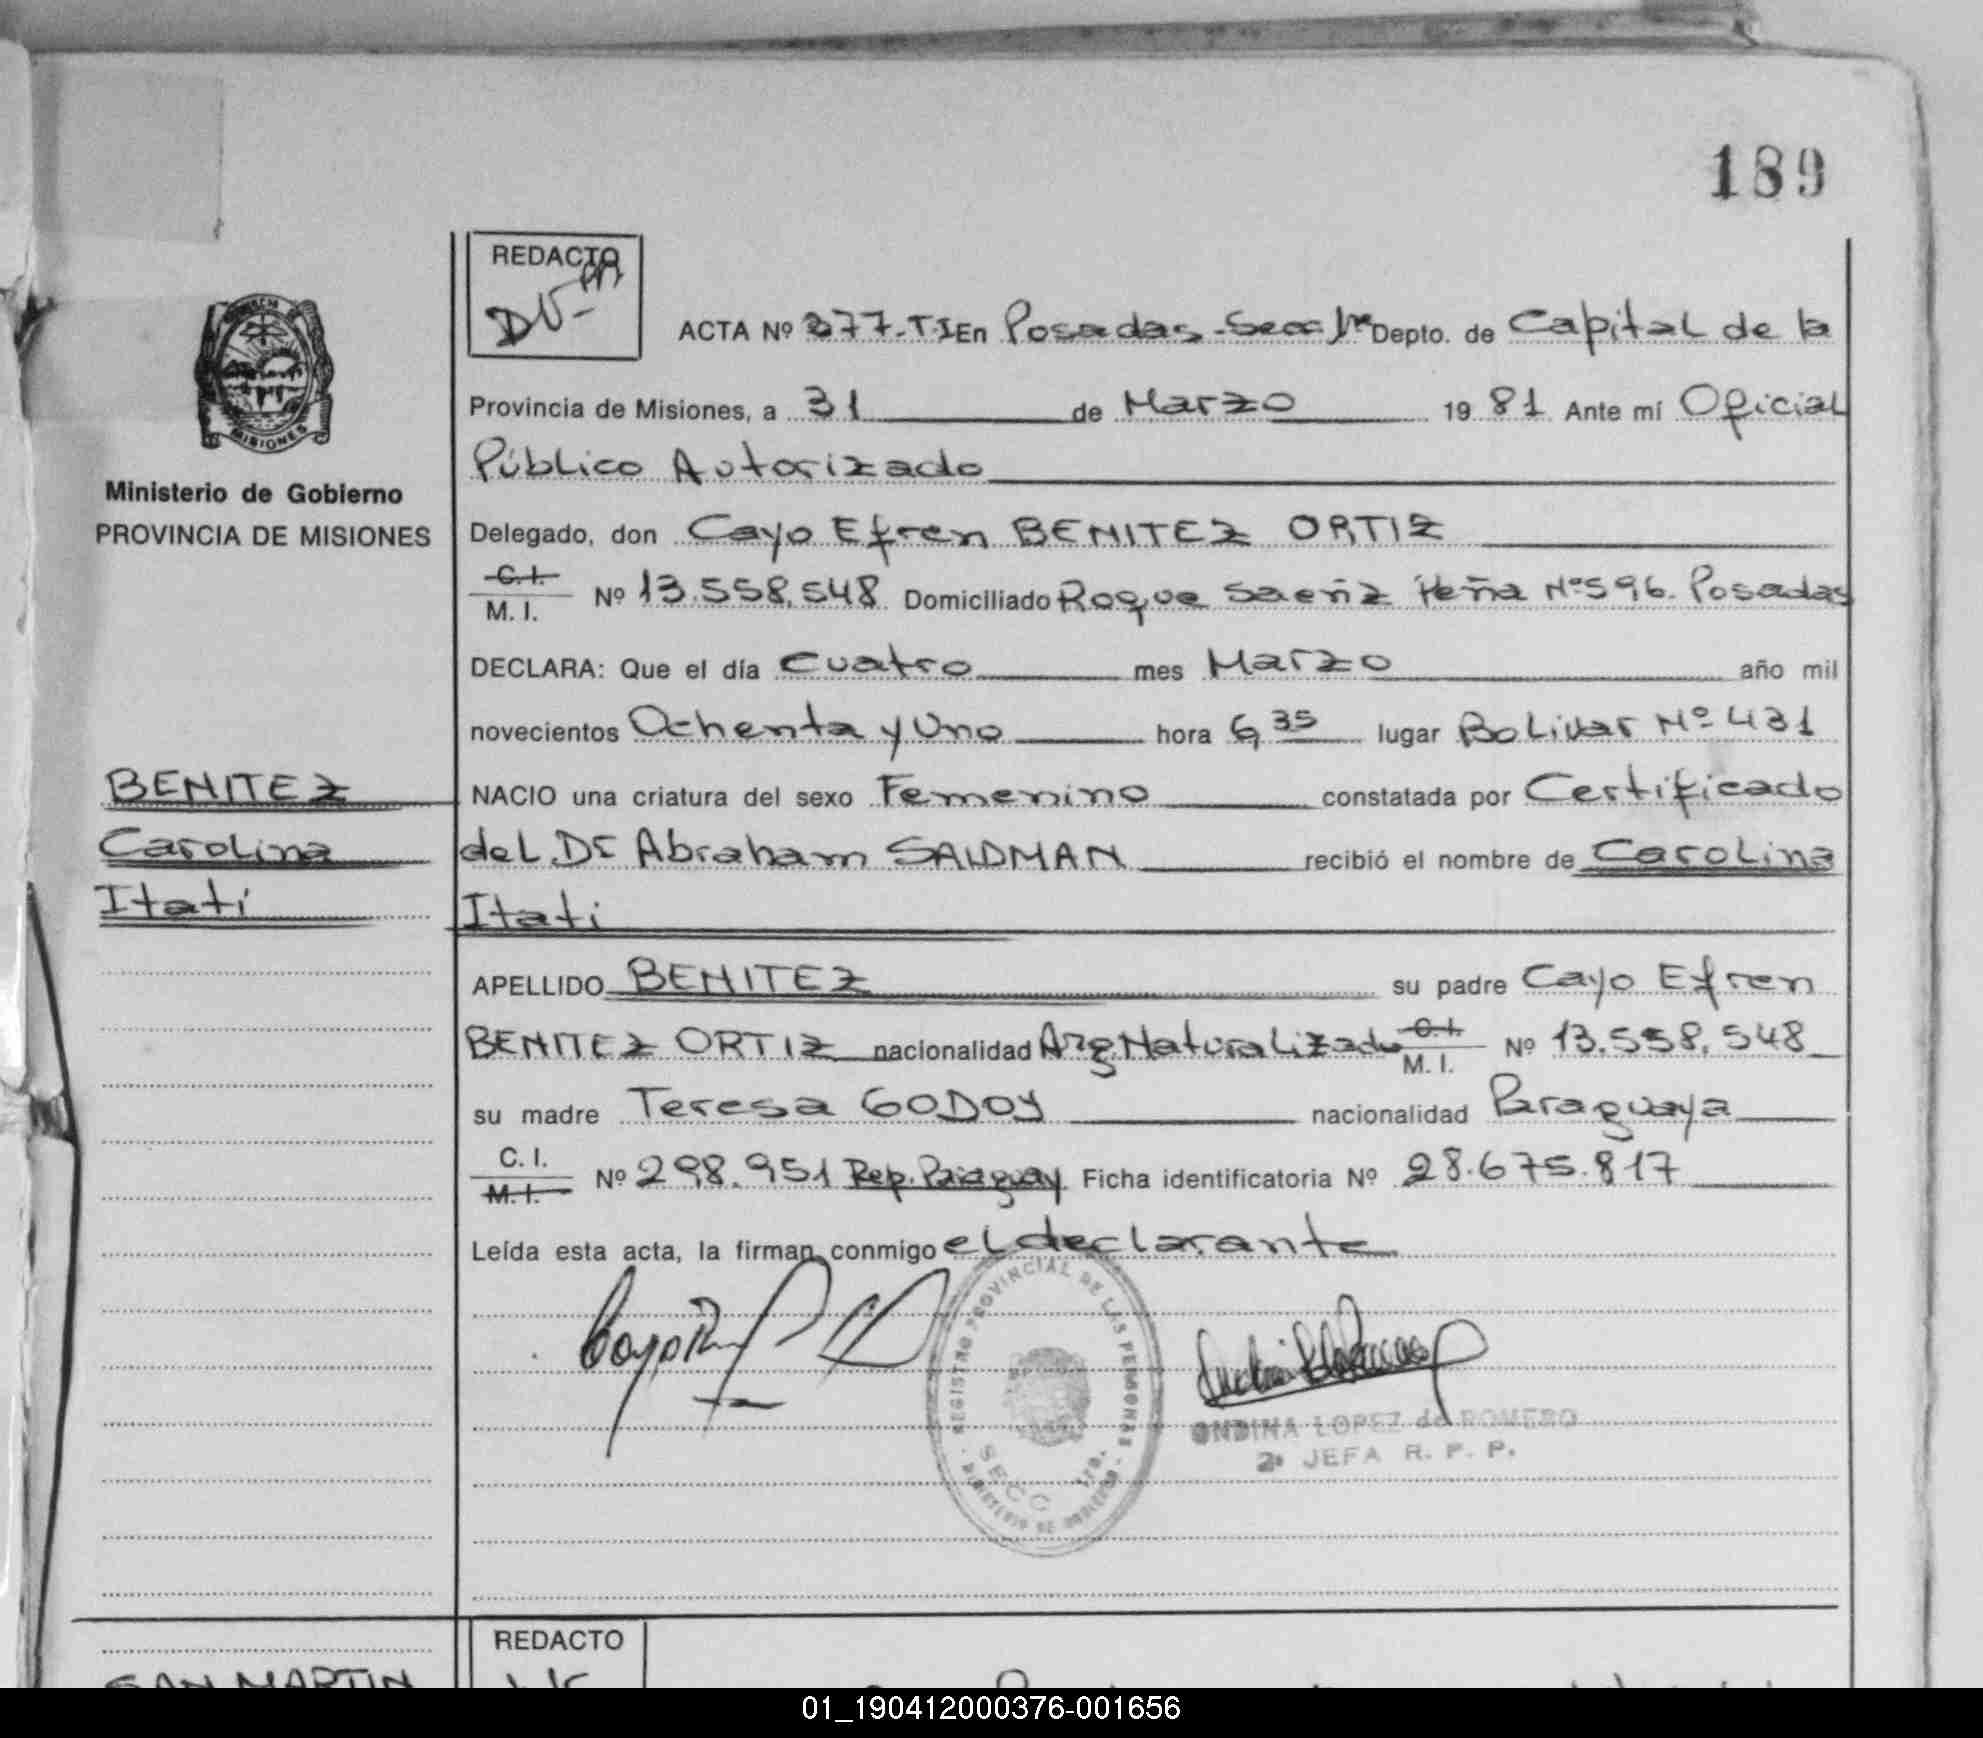 189
REDACTO
ACTA Nº 377-T-I En Posadas-Secc 1ra Depto. de Capital de la
Provincia de Misiones, a 31 de Marzo 1981 Ante mí Oficial
Público Autorizado
MISIONES
Ministerio de Gobierno
PROVINCIA DE MISIONES
Delegado, don Cayo Efren BENITEZ ORTIZ
C.I.
M.I. Nº 13.558.548 Domiciliado Roque Saeñz Peña Nº 596. Posadas
DECLARA: Que el día Cuatro mes Marzo año mil
novecientos Ochenta y Uno hora 6,35 lugar Bolivar Nº 431
NACIO una criatura del sexo Femenino constatada por Certificado
del Dr Abraham SAIDMAN recibió el nombre de Carolina
Itatí
BENITEZ
Carolina
Itatí
APELLIDO BENITEZ su padre Cayo Efren
BENITEZ ORTIZ nacionalidad Arg. Naturalizado C.I.
M.I. Nº 13.558.548
su madre Teresa GODOY nacionalidad Paraguaya
C.I.
M.I. Nº 298.951 Rep. Paraguay Ficha identificatoria Nº 28.675.817
Leída esta acta, la firman conmigo el declarante
REGISTRO PROVINCIAL DE LAS PERSONAS
SECC 1RA.
MINISTERIO DE GOBIERNO
ONDINA LOPEZ de ROMERO
2ª JEFA R. P. P.
REDACTO
SAN MARTIN
01_190412000376-001656